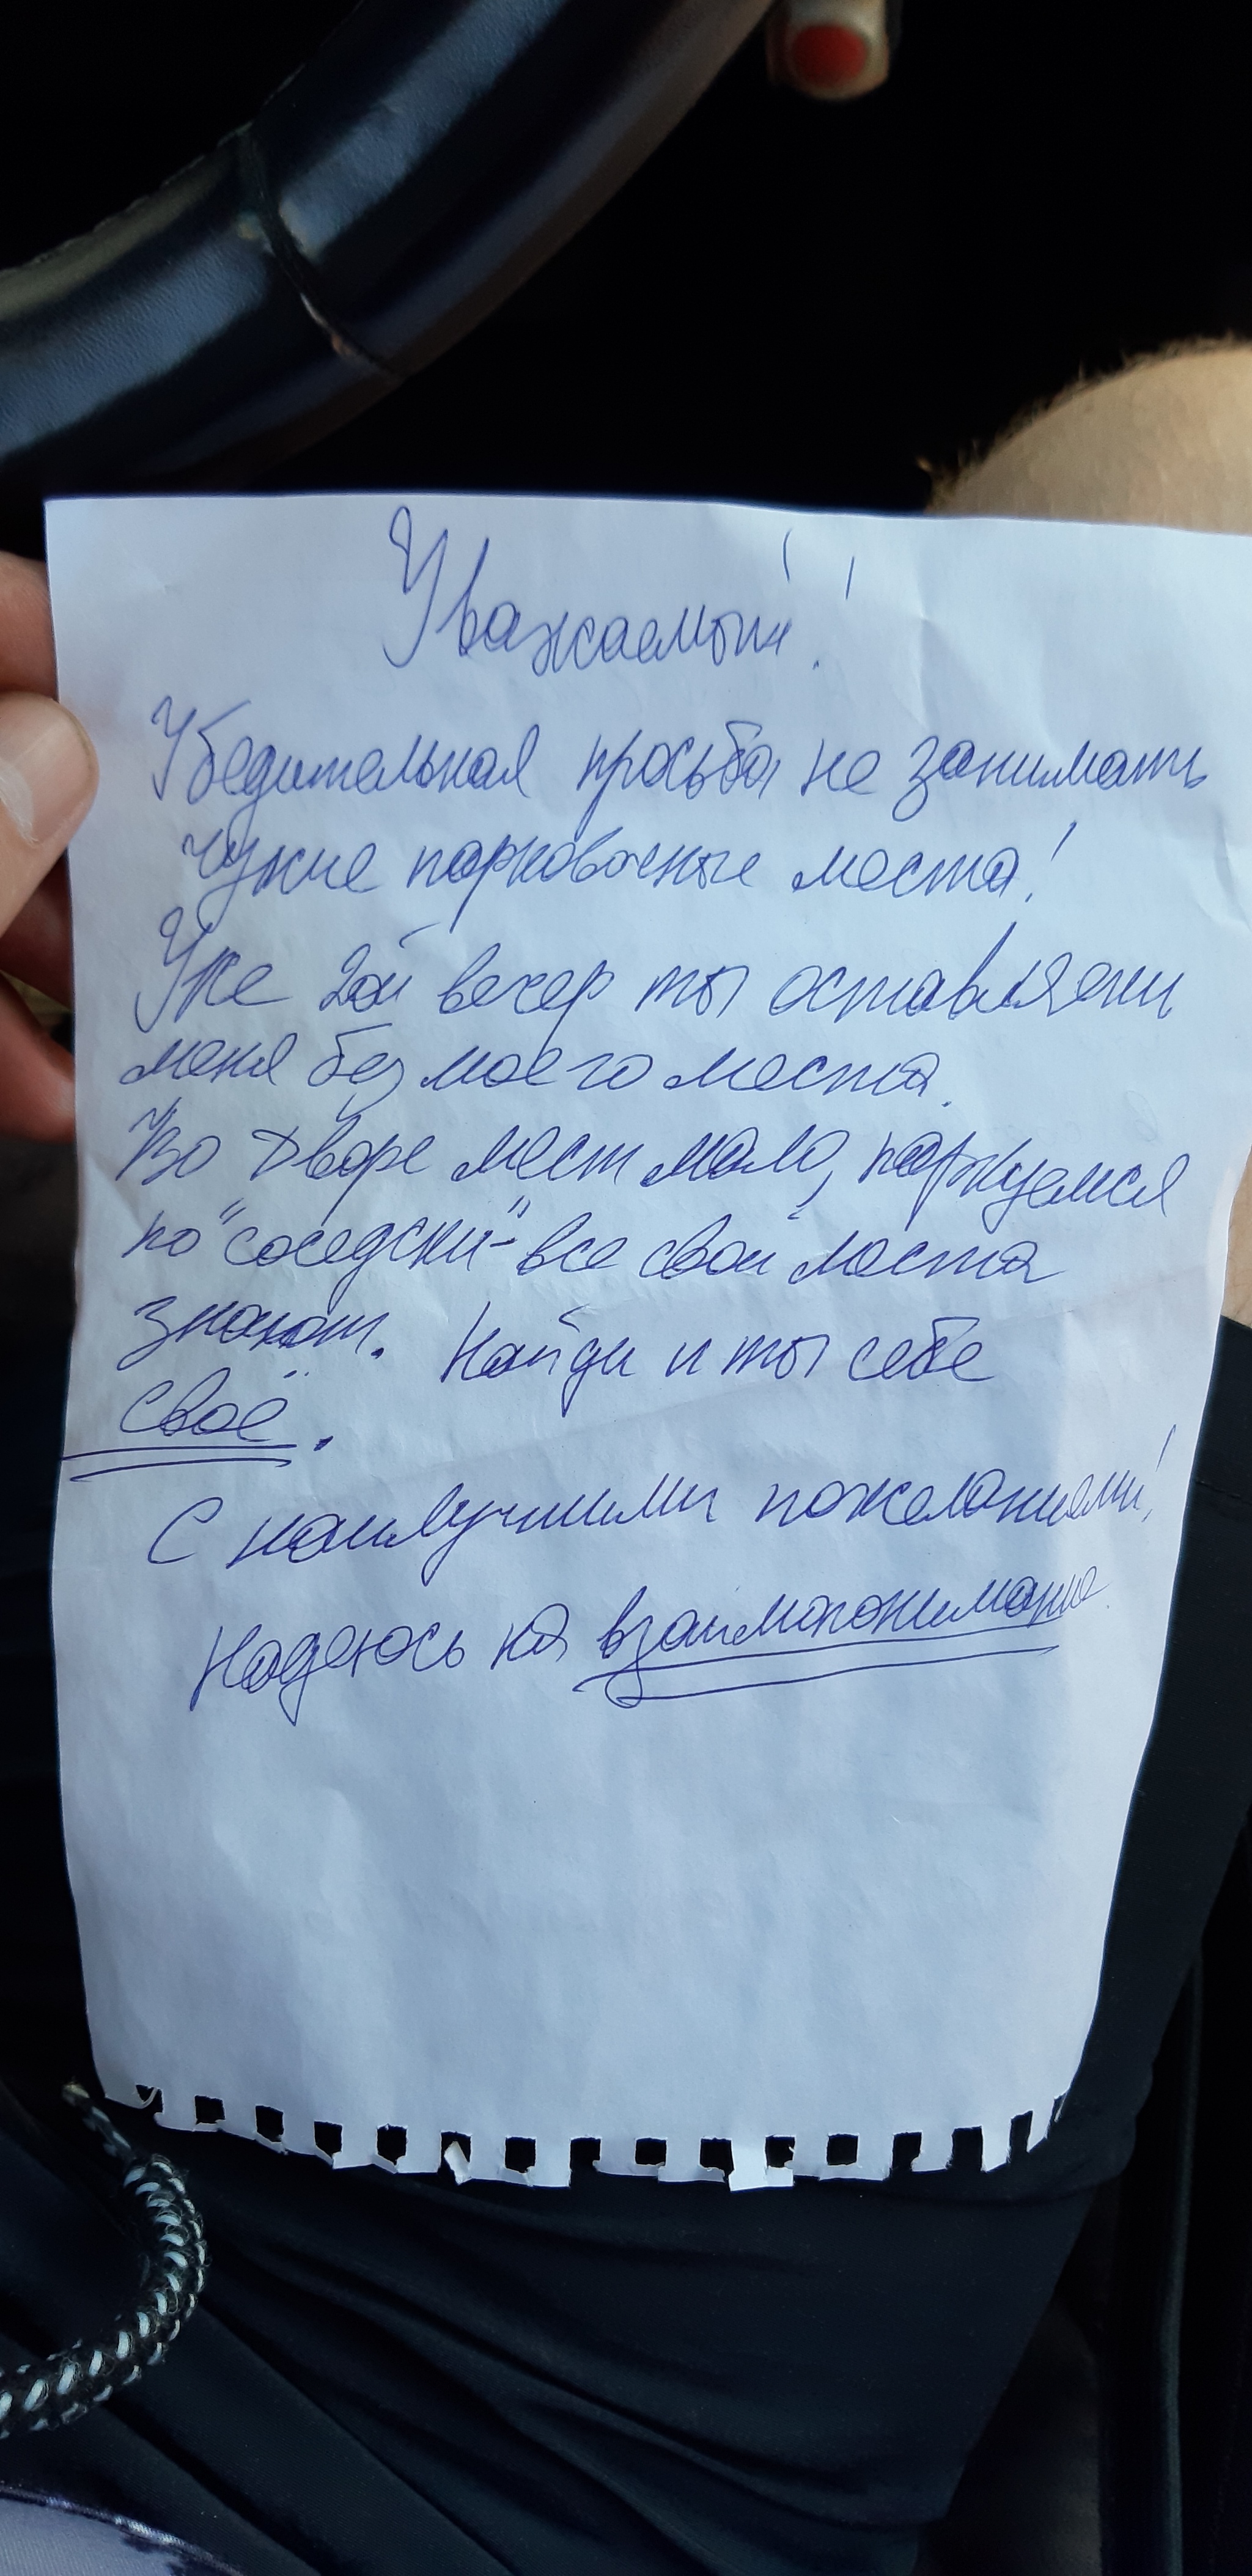 Уважаемый!
Убедительная просьба не занимать
чужие парковочные места!
Уже 2ой вечер ты оставляешь
меня без моего места.
Во дворе мест мало, паркуемся
по "соседски" - все свои места
знают. Найди и ты себе
своё.
С наилучшими пожеланиями!
Надеюсь на взаимопонимание.